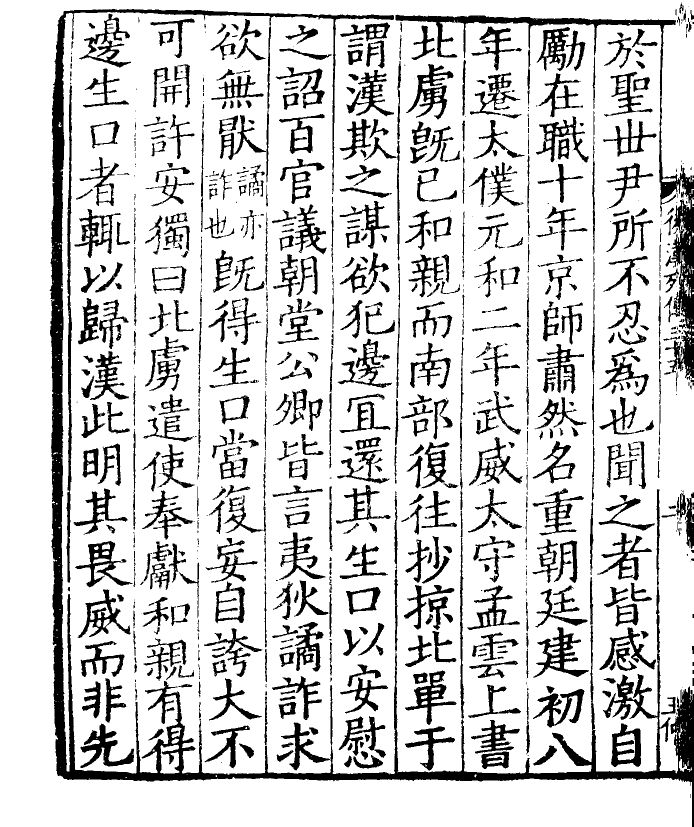 於聖世尹所不忍爲也聞之者皆感激自
厲在職十年京師肅然名重朝廷建初八
年遷太僕元和二年武威太守孟雲上書
北虜旣已和親而南部復往抄掠北單于
謂漢欺之謀欲犯邊宜還其生口以安慰
之詔百官議朝堂公卿皆言夷狄譎詐求
欲無猒譎亦詐也旣得生口當復妄自誇大不
可開許安獨曰北虜遣使奉獻和親有得
邊生口者輒以歸漢此明其畏威而非先